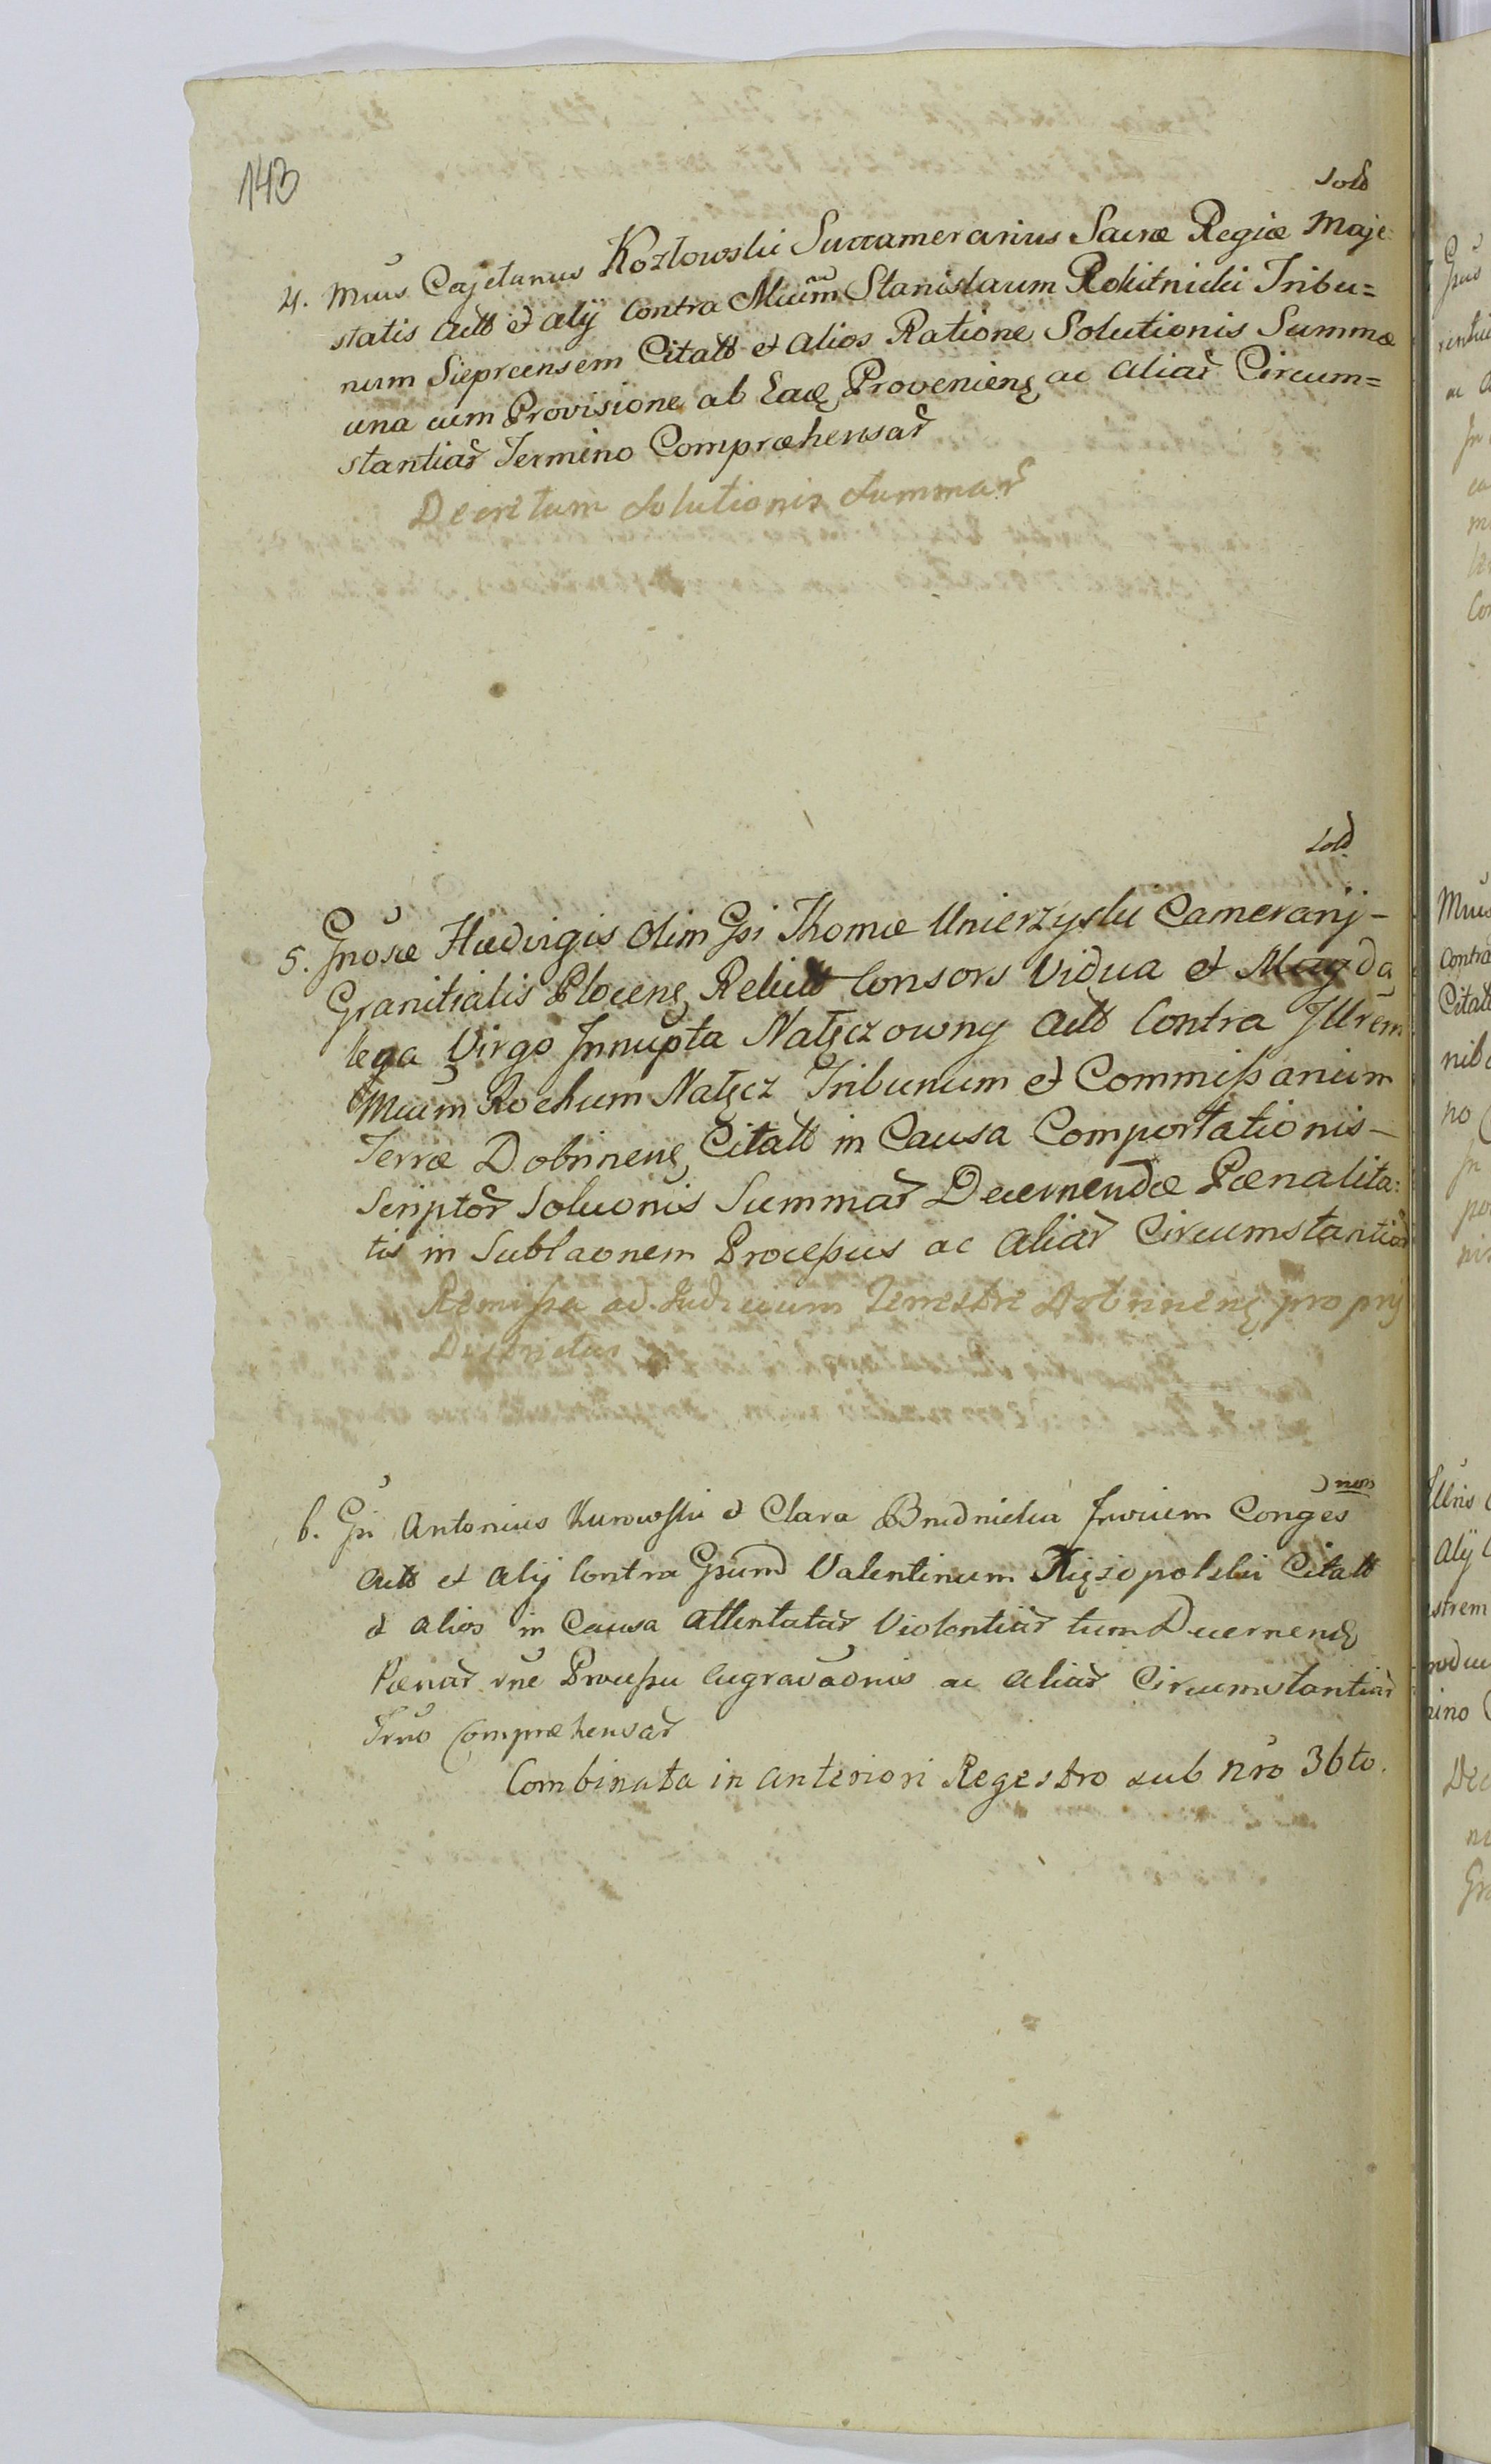 143
sold
4. Mcus Cajetanus Kozłowski Succamerarius Sacræ Regiæ Maje=
statis Actt et alij Contra Mcum Stanislaum Rokitnicki Tribu=
num Sieprcensem Citatt et alios Ratione Solutionis Summæ
una cum Provisione ab Eaę Provenienę ac aliar Circum=
stantiar Termino Compræhensar
Decretum Solutionis Summar
sold
5. Gnosæ Hædvigis olim Gsi Thomæ Unierzyski Cameranij-
Granitialis Plocenę Relictt Consors Vidua et Magda
lega Virgo Innupta Natęczowny Actt Contra Illrem
Mcum Rochum Natęcz Tribunum et Commissarium
Terræ Dobrinenę Citatt in Causa Comportationis-
Scriptor Soluonis Summar Decernendæ Pænalita:
tis in Sublaonem Processus ac aliar Circumstantiar
Remissa ad Judicium Terrestre Dobrinenę pro prij
Districtus
non
6. Gsi Antonius Kurowski et Clara Brudnicka Invicem Conges
Actt et alij Contra Gsum Valentinum Księżopolski Citatt
et alios in Causa attentatar Violentiar tum Decernendę
Pænar sne Processu Aggravaonis ac aliar Circumstantiar
Trno Compræhensar
Combinata in anteriori Regestro sub nro 36to.